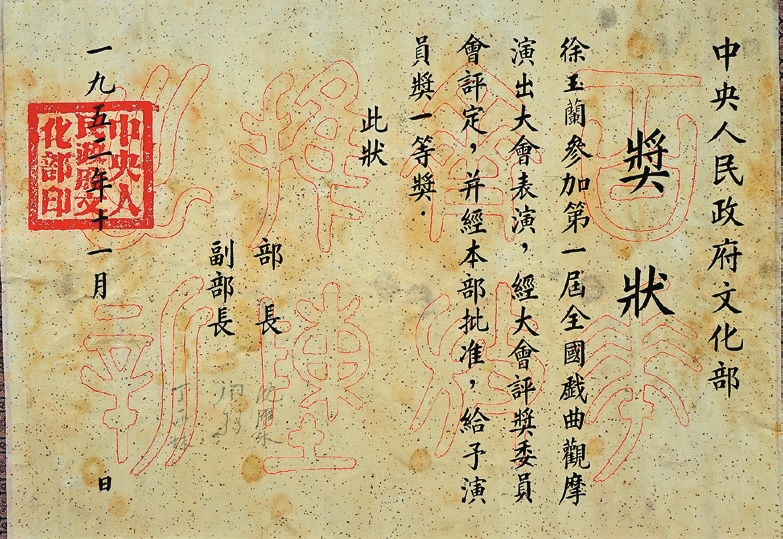 中央人民政府文化部
獎狀
徐玉蘭參加第一屆全國戲曲觀摩
演出大會表演，經大會評獎委員
會評定，并經本部批准，給予演
員獎一等獎．
此狀
部長
副部長
一九五二年十一月 日
中央人民政府文化部印
百花
齊放
推陳
出新